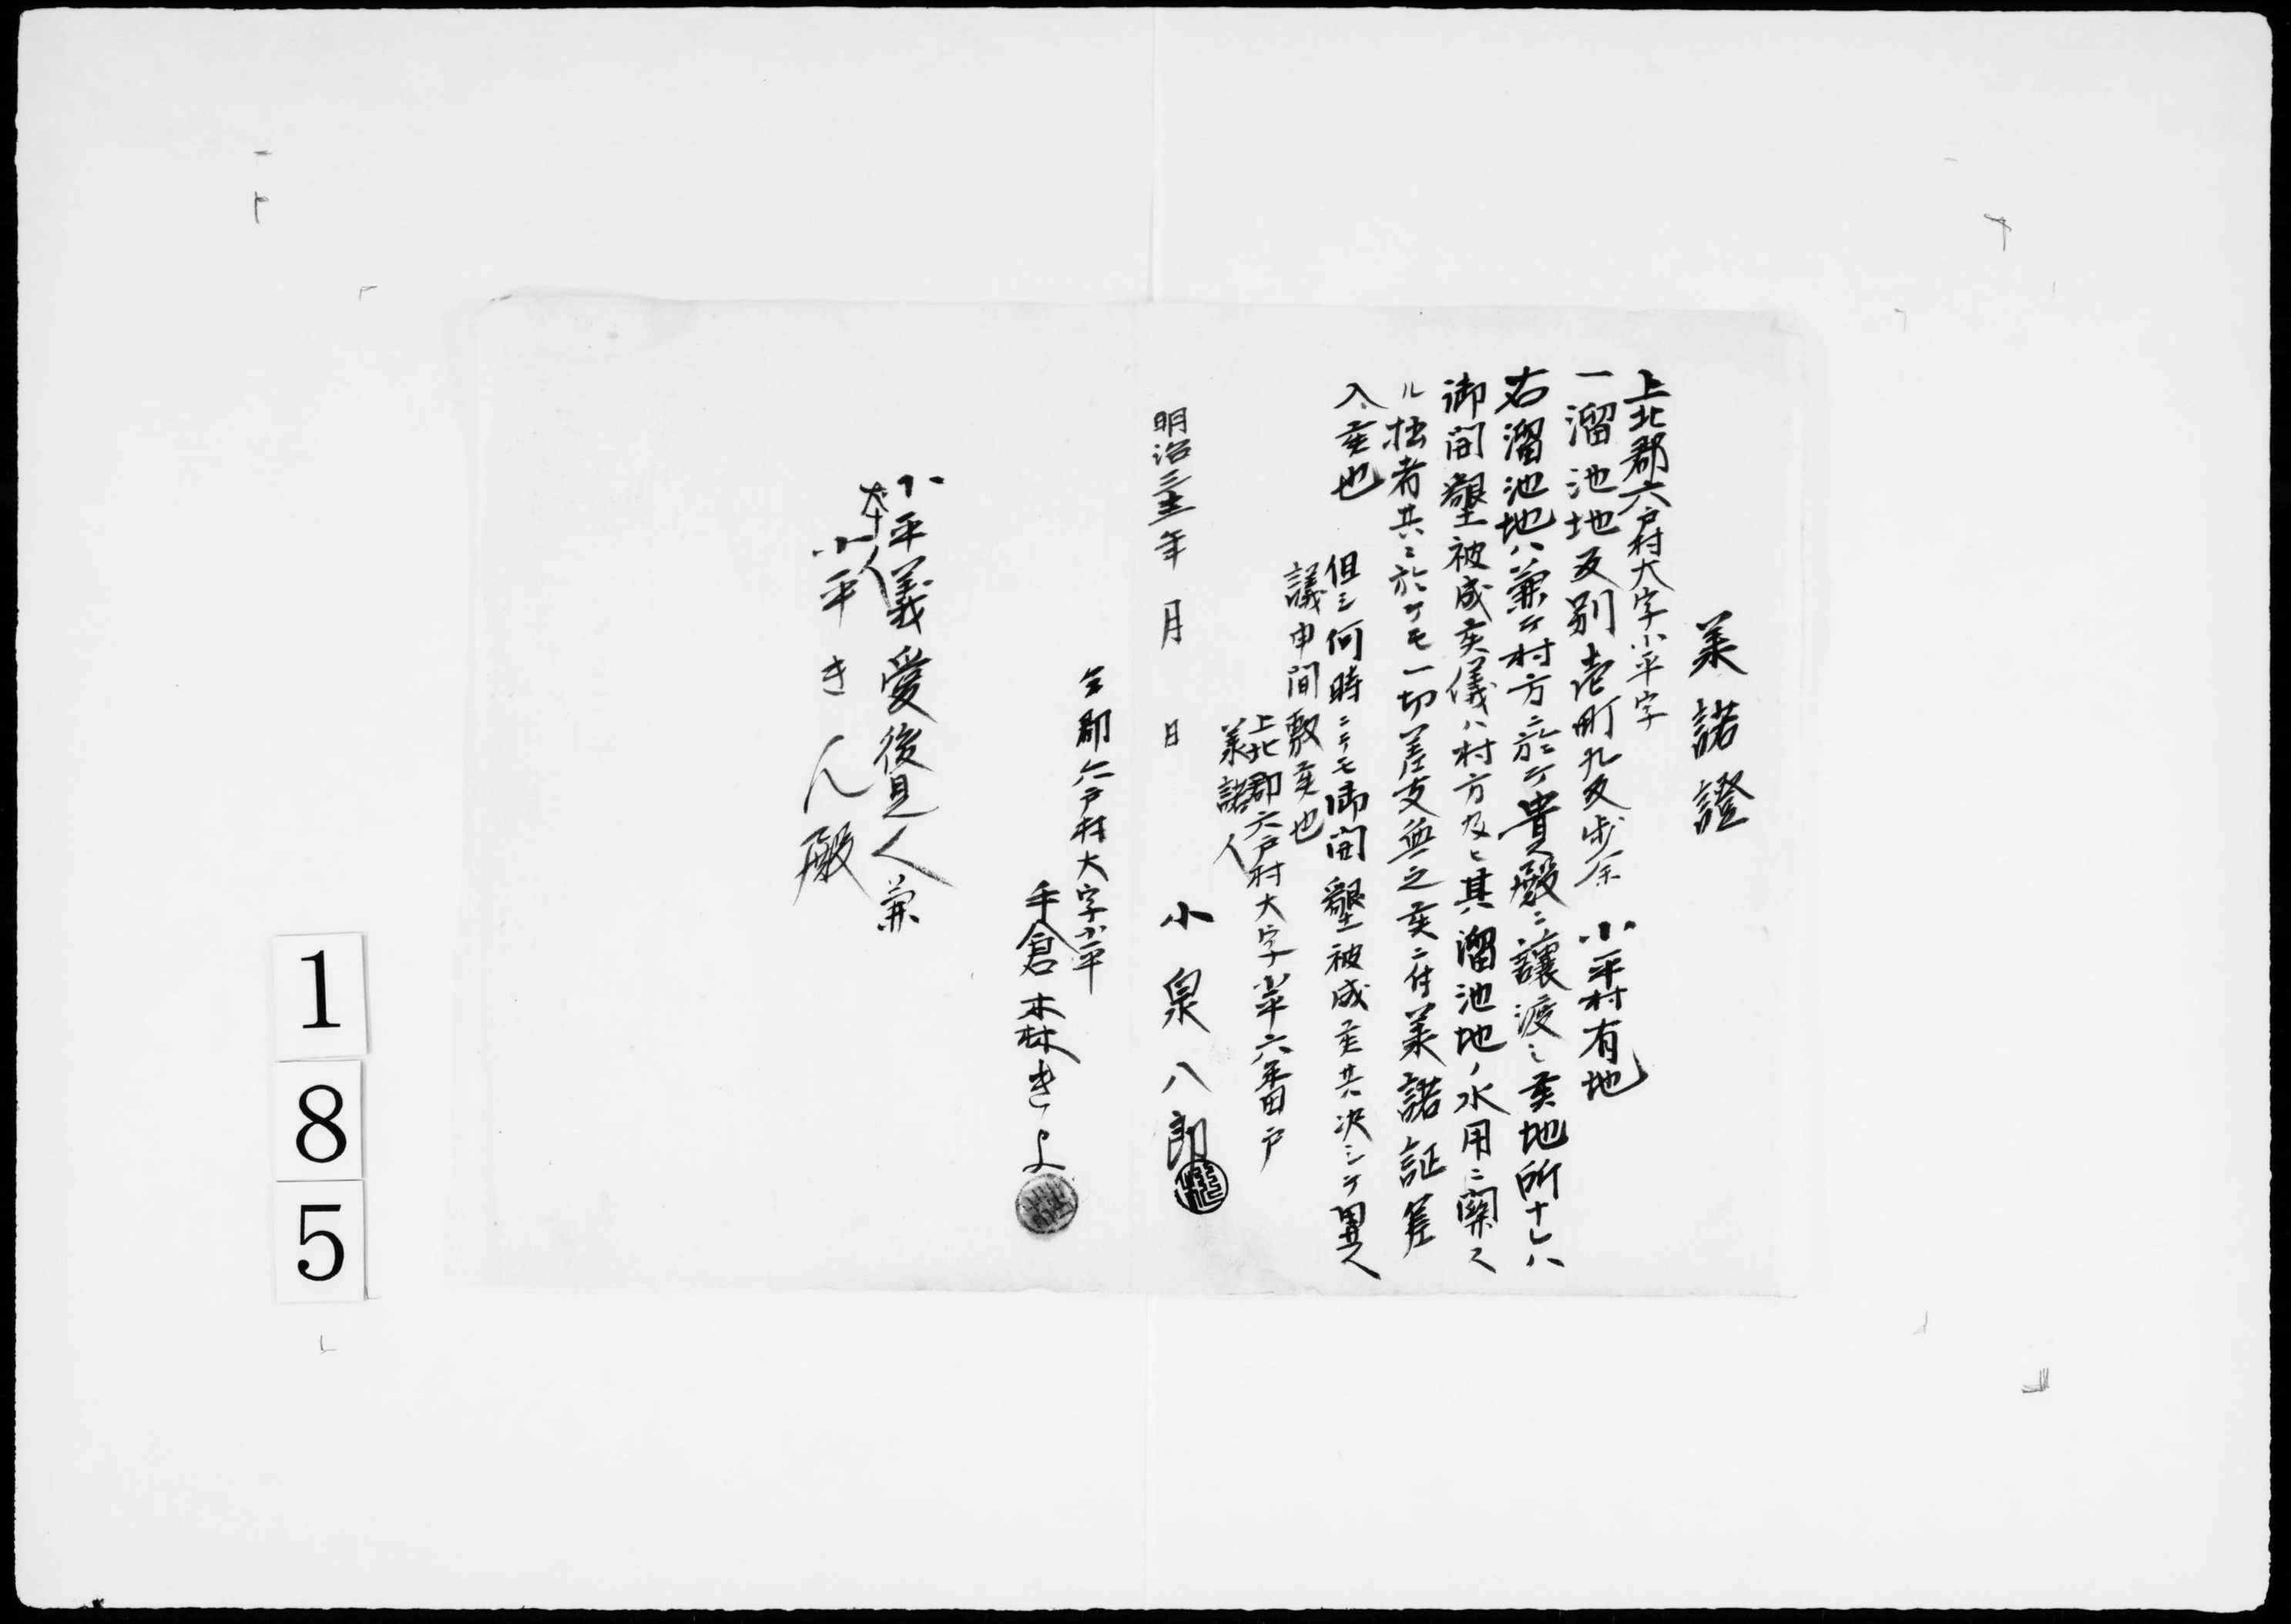 承諾證
上北郡六戸村大字小平字
一溜池地反別壱町九反歩余 小平村有地
右溜池地ハ兼テ村方ニ於テ貴殿ニ譲渡シ候地所ナレハ
御開墾被成候儀ハ村方及ヒ其溜池地ノ水用ニ関ス
ル拙者共ニ於テモ一切差支無之候ニ付承諾証差
入候也
但シ何時ニテモ御開墾被成候共決シテ異
議申間敷候也
上北郡六戸村大字小平六番戸
承諾人
小泉八郎
明治三十年 月 日
仝郡六戸村大字小平
手倉森きよ
小平義愛後見人兼
本人
小平きん殿
185